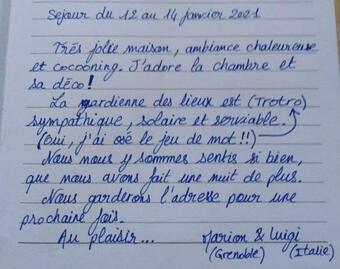 Séjour du 12 au 14 janvier 2021
Très jolie maison, ambiance chaleureuse
et cocooning. J'adore la chambre et
sa déco!
La gardienne des lieux est (Trotro)
sympathique, solaire et serviable.
(Oui, j'ai osé le jeu de mot!!)
Nous nous y sommes sentis si bien,
que nous avons fait une nuit de plus.
Nous garderons l'adresse pour une
prochaine fois.
Au plaisir... Marion & Luigi
(Grenoble) (Italie)